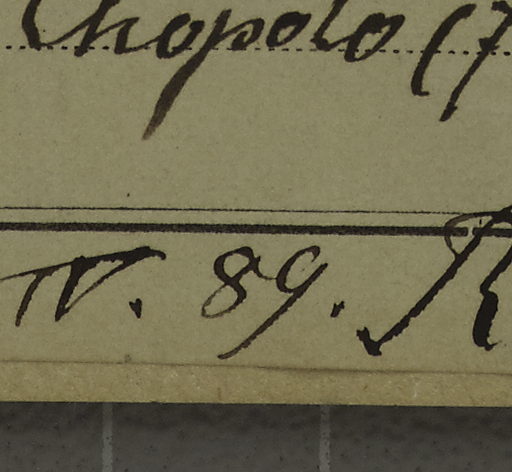 Chopolo (7
IV. 89. R